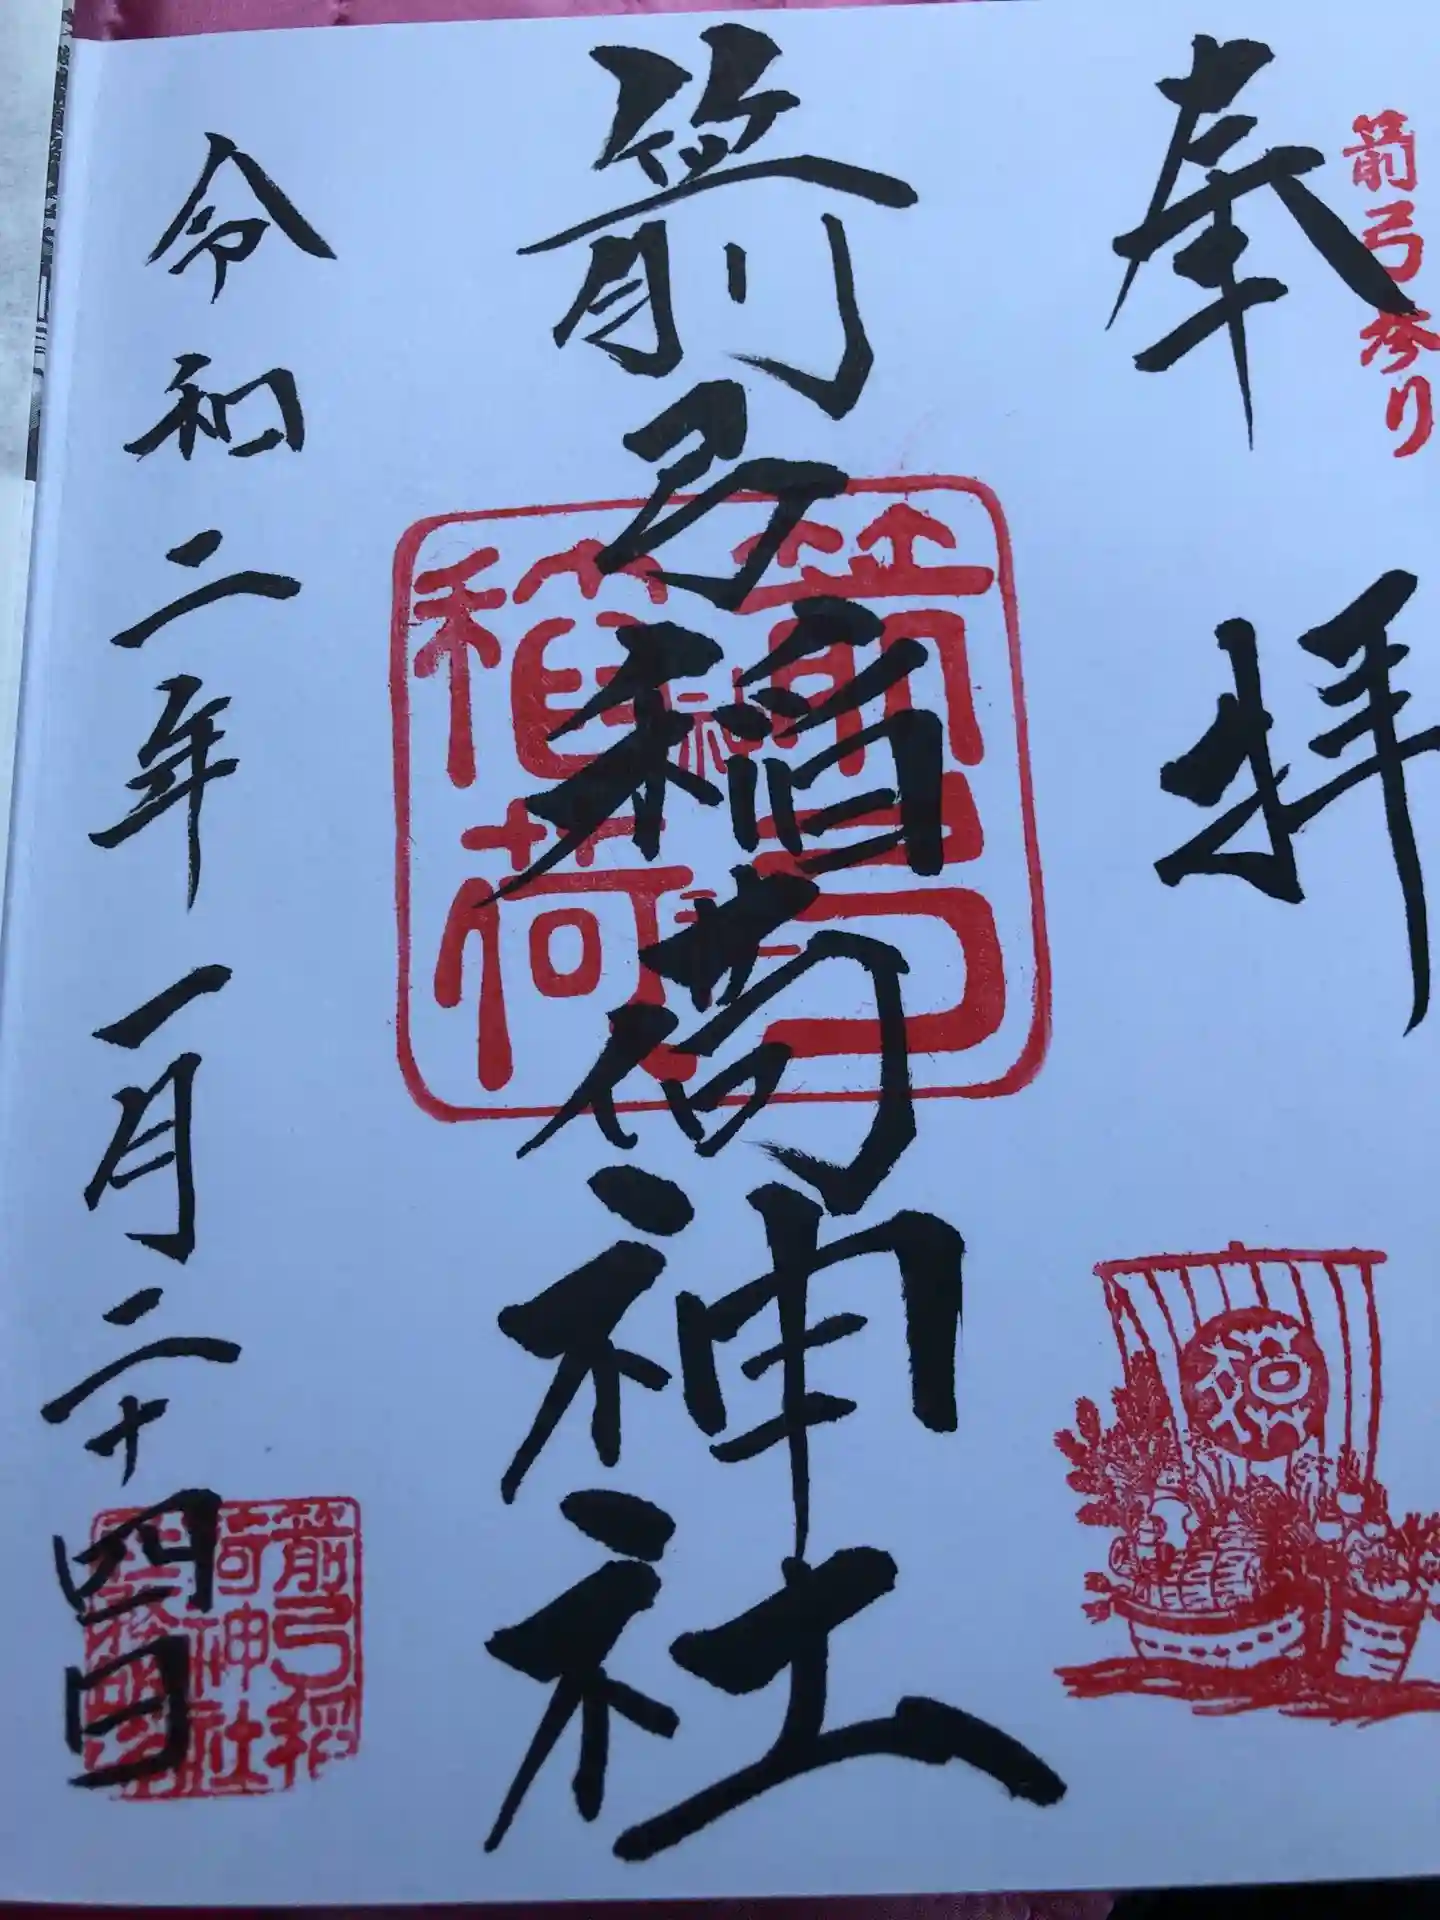 箭弓参り
奉拝
箭弓稲荷神社
箭弓
稲荷
令和二年一月二十四日
箭弓稲
荷神社